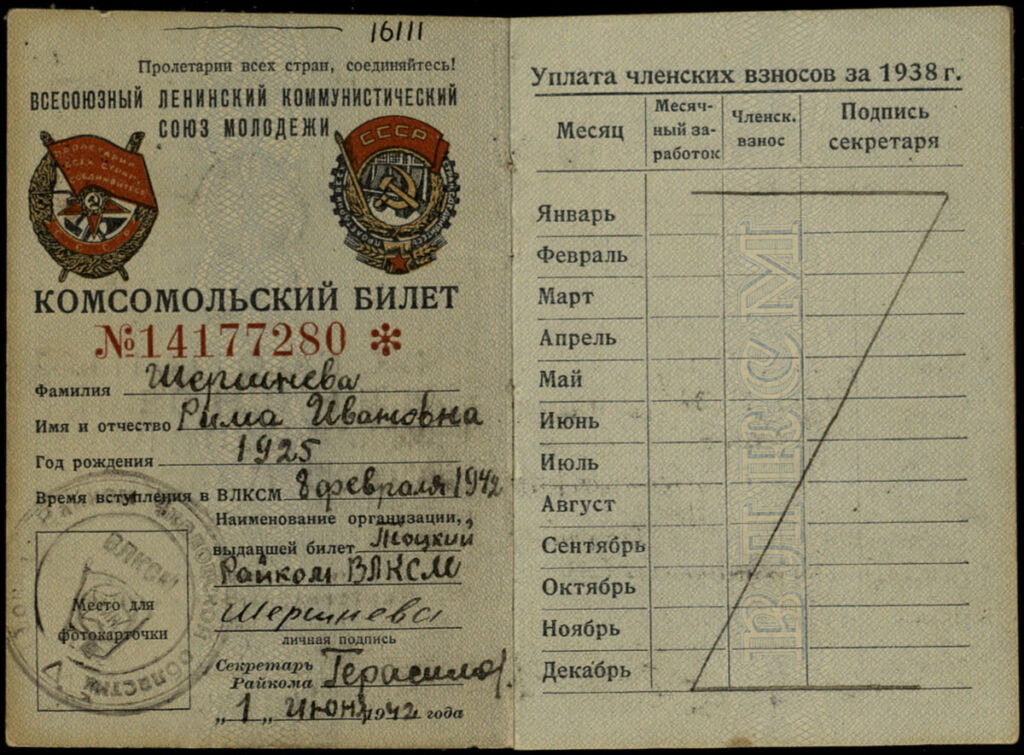 16111
Пролетарии всех стран, соединяйтесь!
ВСЕСОЮЗНЫЙ ЛЕНИНСКИЙ КОММУНИСТИЧЕСКИЙ
СОЮЗ МОЛОДЕЖИ
ПРОЛЕТАРИИ
ВСЕХ СТРАН
СОЕДИНЯЙТЕСЬ
СССР
СССР
КОМСОМОЛЬСКИЙ БИЛЕТ
№14177280 *
Фамилия Шершнева
Имя и отчество Рима Ивановна
Год рождения 1925
Время вступления в ВЛКСМ 8 февраля 1942
Наименование организации,
выдавшей билет Тоцкий
Райком ВЛКСМ
ВЛКСМ
Место для
фотокарточки
Шершнева
личная подпись
Секретарь
Райкома Герасимов
„1„ июня 1942 года
Уплата членских взносов за 1938 г.
Месяц
Месяч-
ный за-
работок
Членск.
взнос
Подпись
секретаря
Январь
Февраль
Март
Апрель
Май
Июнь
Июль
Август
Сентябрь
Октябрь
Ноябрь
Декабрь
ВЛКСМ